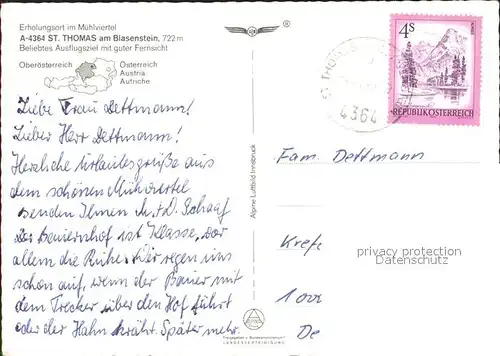 Erholungsort im Mühlviertel
A-4364 ST. THOMAS am Blasenstein, 722 m
Beliebtes Ausflugsziel mit guter Fernsicht
Oberösterreich
Österreich
Austria
Autriche
Liebe Frau Dettmann!
Lieber Herr Dettmann!
Herzliche Urlaubsgrüße aus
dem schönen Mühlviertel
senden Ihnen H. + D. Schaaf
Der Bauernhof ist Klasse, vor
allem die Ruhe. Wir regen uns
schon auf, wenn der Bauer mit
dem Trecker über den Hof fährt
oder der Hahn kräht. Später mehr.
Alpine Luftbild Innsbruck
®
ST. THOMAS
4364
4S
REPUBLIK ÖSTERREICH
Fam. Dettmann
Krefe
privacy protection
Datenschutz
1000
De